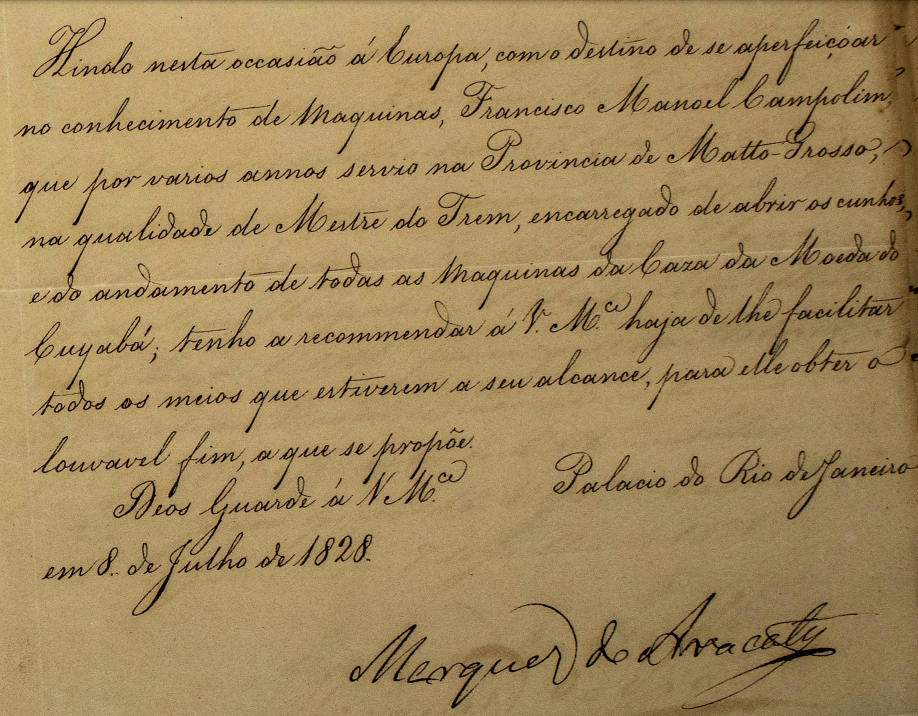 Hindo nesta occasião á Europa, com o destino de se aperfeiçoar
no conhecimento de Maquinas, Francisco Manoel Campolim,
que por varios annos servio na Provincia de Matto-Grosso,
na qualidade de Mestre do Trem, encarregado de abrir os cunhos,
e do andamento de todas as Maquinas da Caza da Moeda do
Cuyabá; tenho a recommendar á V. M.ce haja de lhe facilitar
todos os meios que estiverem a seu alcance, para elle obter o
louvavel fim, a que se propõe.
Deos Guarde á V M.ce Palacio do Rio de Janeiro
em 8. de Julho de 1828.
Marquez de Aracaty